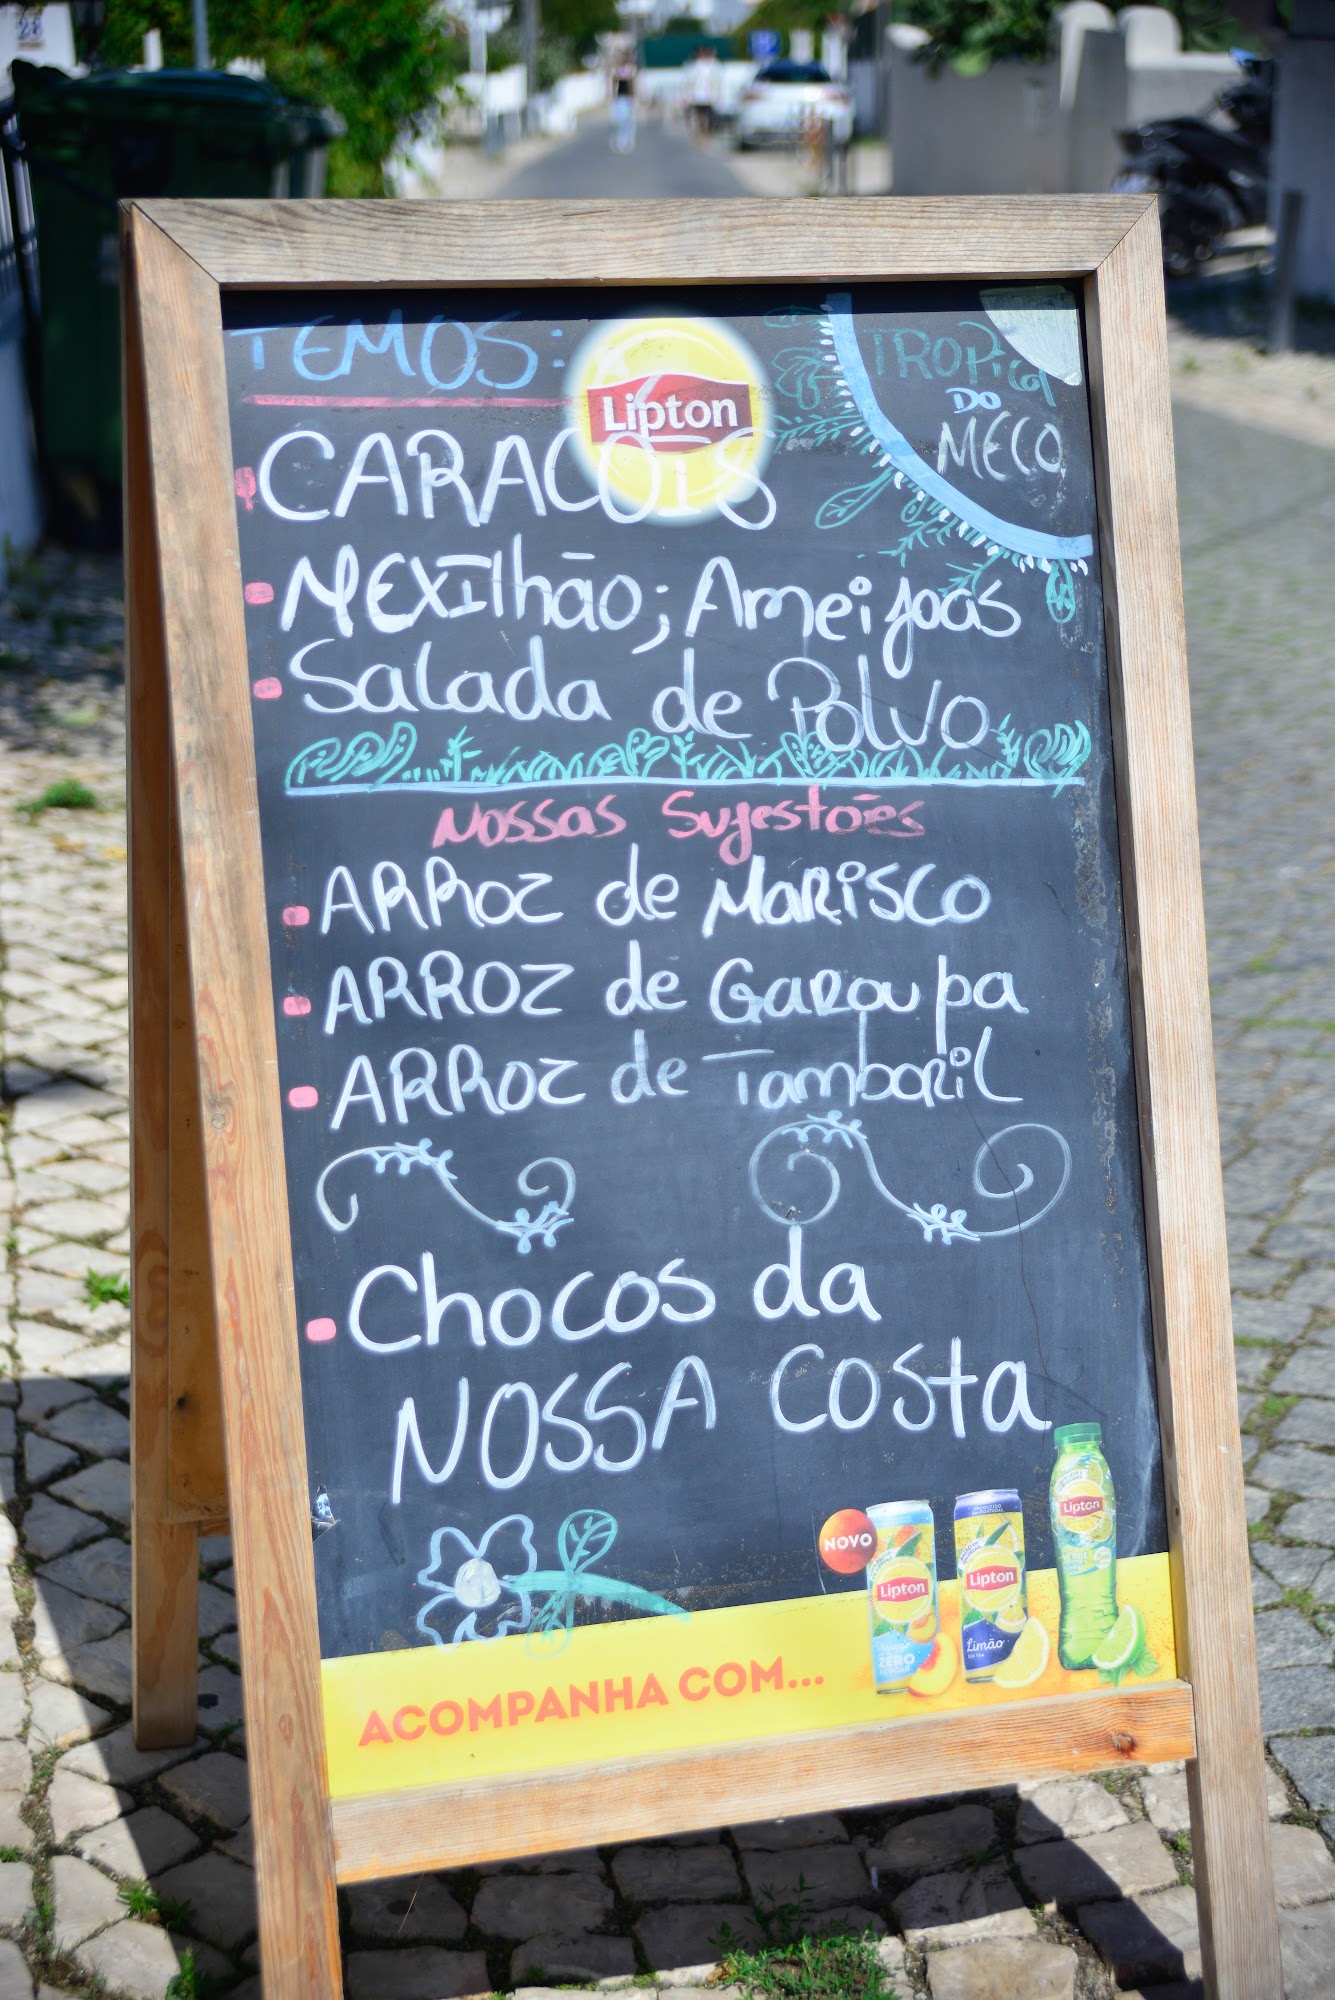 TEMOS:
Lipton
TROPICAL
DO
MECO
CARACOIS
MEXIlhão; Ameijoas
Salada de Polvo
Nossas Sugestões
ARROZ de MARISCO
ARROZ de GAROUpa
ARROZ de Tamboril
Chocos da
NOSSA Costa
NOVO
Lipton
ZERO
Lipton
Limão
ICE TEA
Lipton
ACOMPANHA COM...